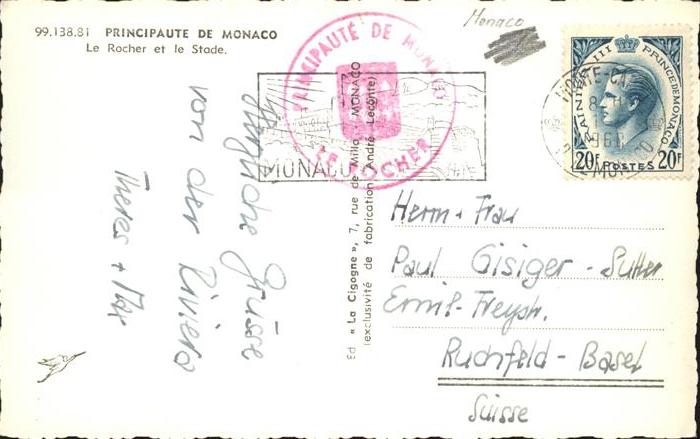 99.138.81 PRINCIPAUTE DE MONACO
Le Rocher et le Stade.
Monaco
PRINCIPAUTÉ DE MONACO
LE ROCHER
MONACO
RAINIER III PRINCE DE MONACO
20F POSTES 20F
MONTE-CARLO
Herzliche Grüsse
von der Riviera
Theres + Max
Ed « La Cigogne », 7, rue de Millo MONACO
(exclusivité de fabrication André Leconte)
Herrn + Frau
Paul Gisiger - Sutter
Emil-Freystr.
Ruchfeld - Basel
Suisse